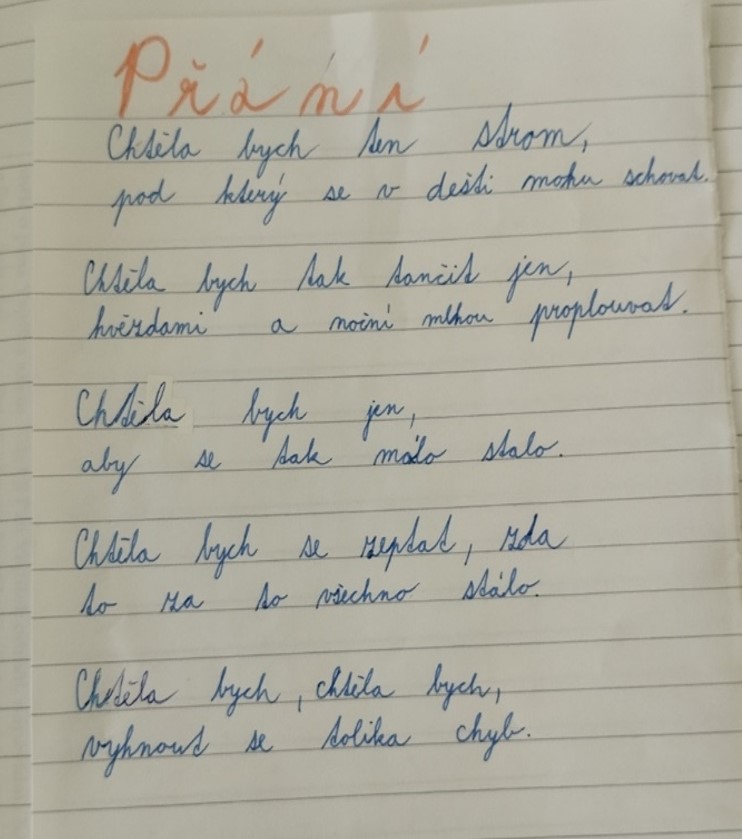 Přání
Chtěla bych ten strom,
pod který se v dešti mohu schovat.
Chtěla bych tak tančit jen,
hvězdami a noční mlhou proplouvat.
Chtěla bych jen,
aby se tak málo stalo.
Chtěla bych se zeptat, zda
to za to všechno stálo.
Chtěla bych, chtěla bych,
vyhnout se tolika chyb.